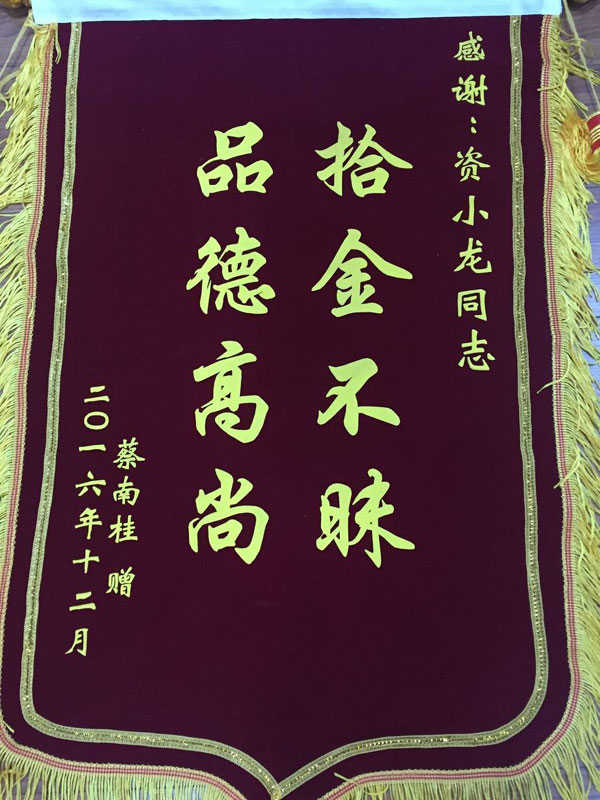 感谢：资小龙同志
拾金不昧
品德高尚
蔡南桂 赠
二〇一六年十二月